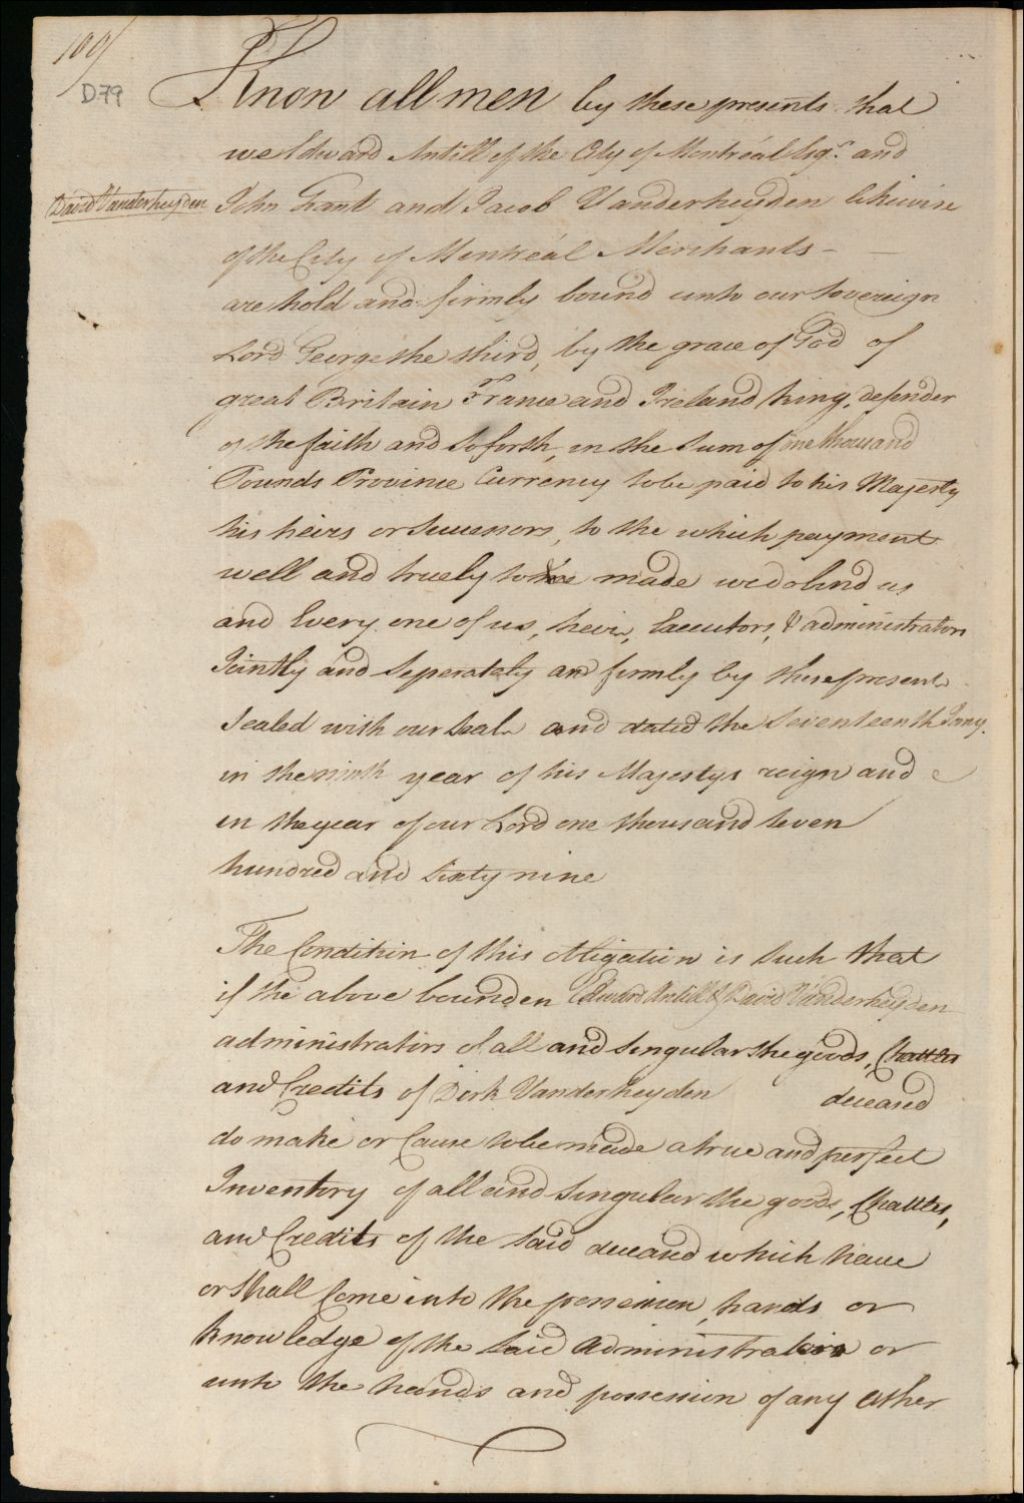 109/
D79
Know all men by these presents that
we Edward Antill of the City of Montréal Esqr. and
David Vanderheyden
John Grant and Jacob Vanderheyden likewise
of the City of Montréal Merchants —
are hold and firmly bound unto our Sovereign
Lord George the third, by the grace of God of
great Britain France and Ireland King, defender
of the faith and So forth, in the Sum of one thousand
Pounds Province Currency to be paid to his Majesty
his heirs or Successors, to the which payment
well and truely to be made we do bind us
and Every one of us, heirs, Executors, & administrators
Jointly and Seperately and firmly by these presents
Sealed with our Seals and dated the Seventeenth Jany.
in the ninth year of his Majestys reign and
in the year of our Lord one thousand Seven
hundred and Sixty nine
The Condition of this obligation is Such that
if the above bounden Edward Antill & David Vanderheyden
administrators of all and Singular the goods, Chattles
and Credits of Dirk Vanderheyden deceased
do make or Cause to be made a true and perfect
Inventory of all and Singular the goods, Chattles,
and Credits of the Said deceased which have
or Shall Come into the possession, hands or
knowledge of the Said Administrators or
unto the hands and possession of any other